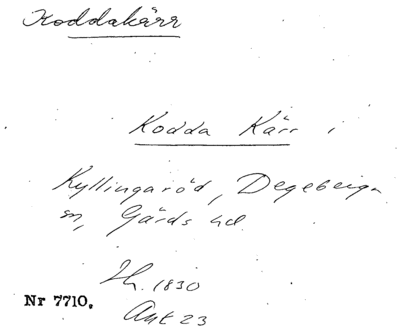 Koddakärr
Kodda Kärr i
Kyllingaröd, Degeberga
sn, Gärds hd
Sk. 1830
Nr 7710.
Akt 23